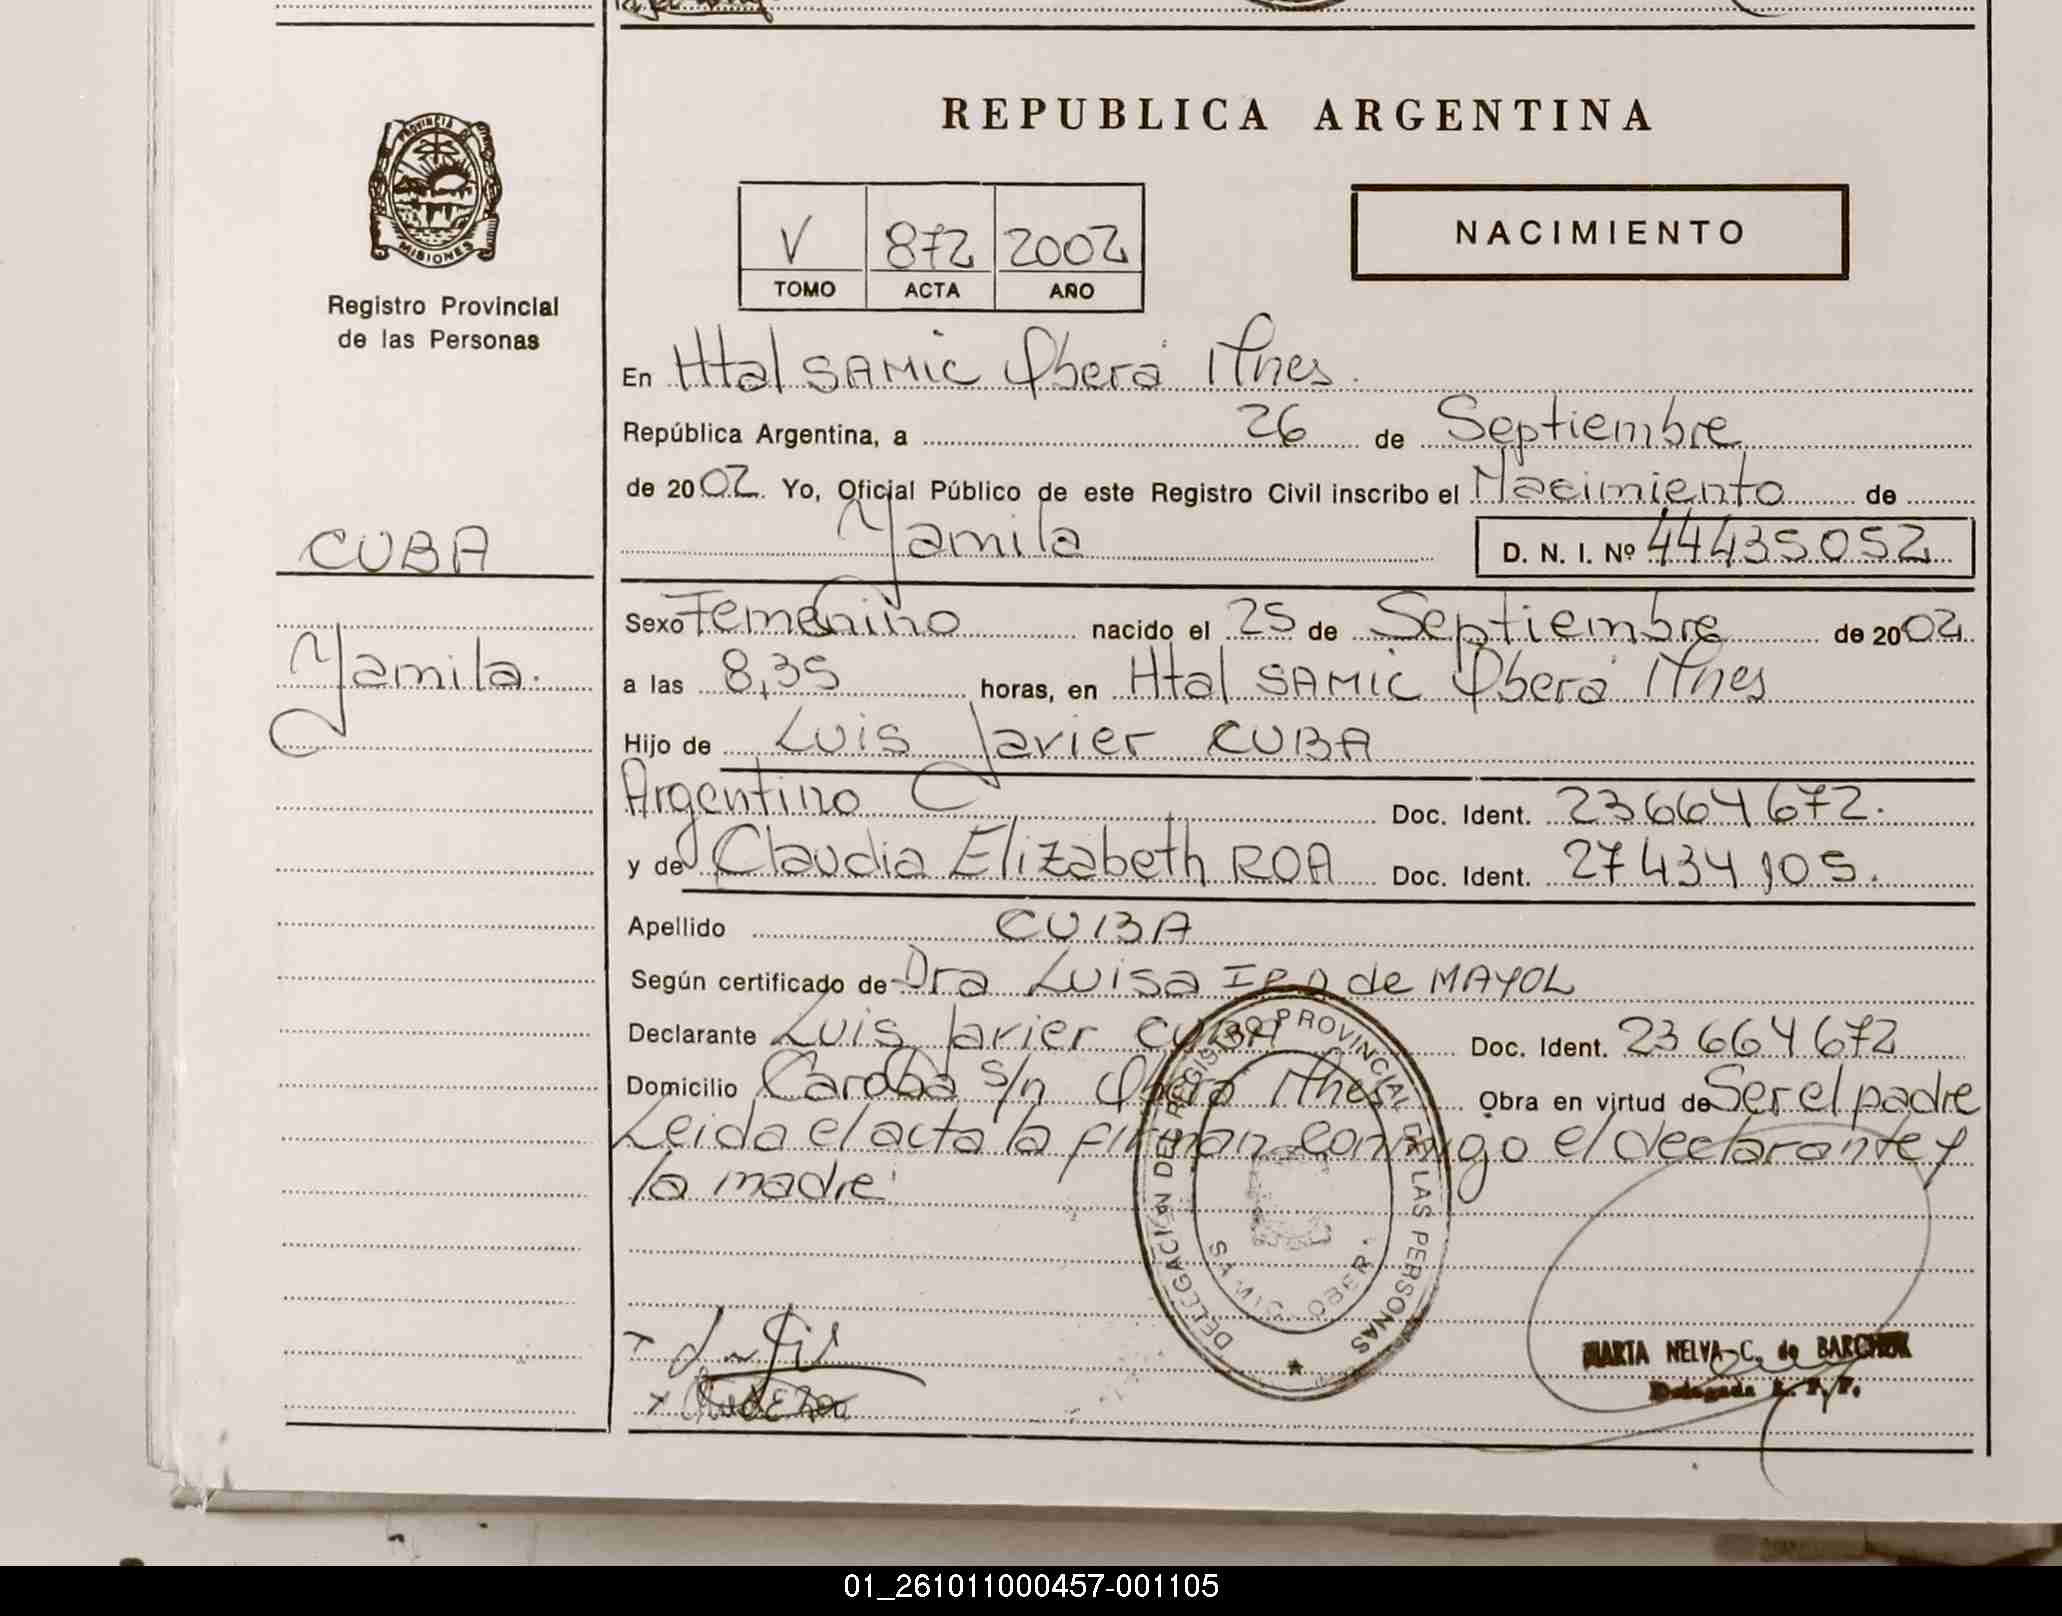 REPUBLICA ARGENTINA
PROVINCIA DE
MISIONES
Registro Provincial
de las Personas
V 872 2002
TOMO ACTA AÑO
NACIMIENTO
En Htal SAMIC Oberá Mnes.
República Argentina, a 26 de Septiembre
de 2002. Yo, Oficial Público de este Registro Civil inscribo el Nacimiento de
Yamila D. N. I. Nº 44435052
CUBA
Yamila.
Sexo Femenino nacido el 25 de Septiembre de 2002
a las 8,35 horas, en Htal SAMIC Oberá Mnes
Hijo de Luis Javier CUBA
Argentino Doc. Ident. 23664672.
y de Claudia Elizabeth ROA Doc. Ident. 27434105.
Apellido CUBA
Según certificado de Dra Luisa de MAYOL
Declarante Luis Javier CUBA Doc. Ident. 23664672
Domicilio Caroba s/n Oberá Mnes Obra en virtud de Ser el padre
Leida el acta la firman conmigo el declarante y
la madre
DELEGACIÓN DEL REGISTRO PROVINCIAL DE LAS PERSONAS
MARTA NELVA C. de
Delegada
01_261011000457-001105